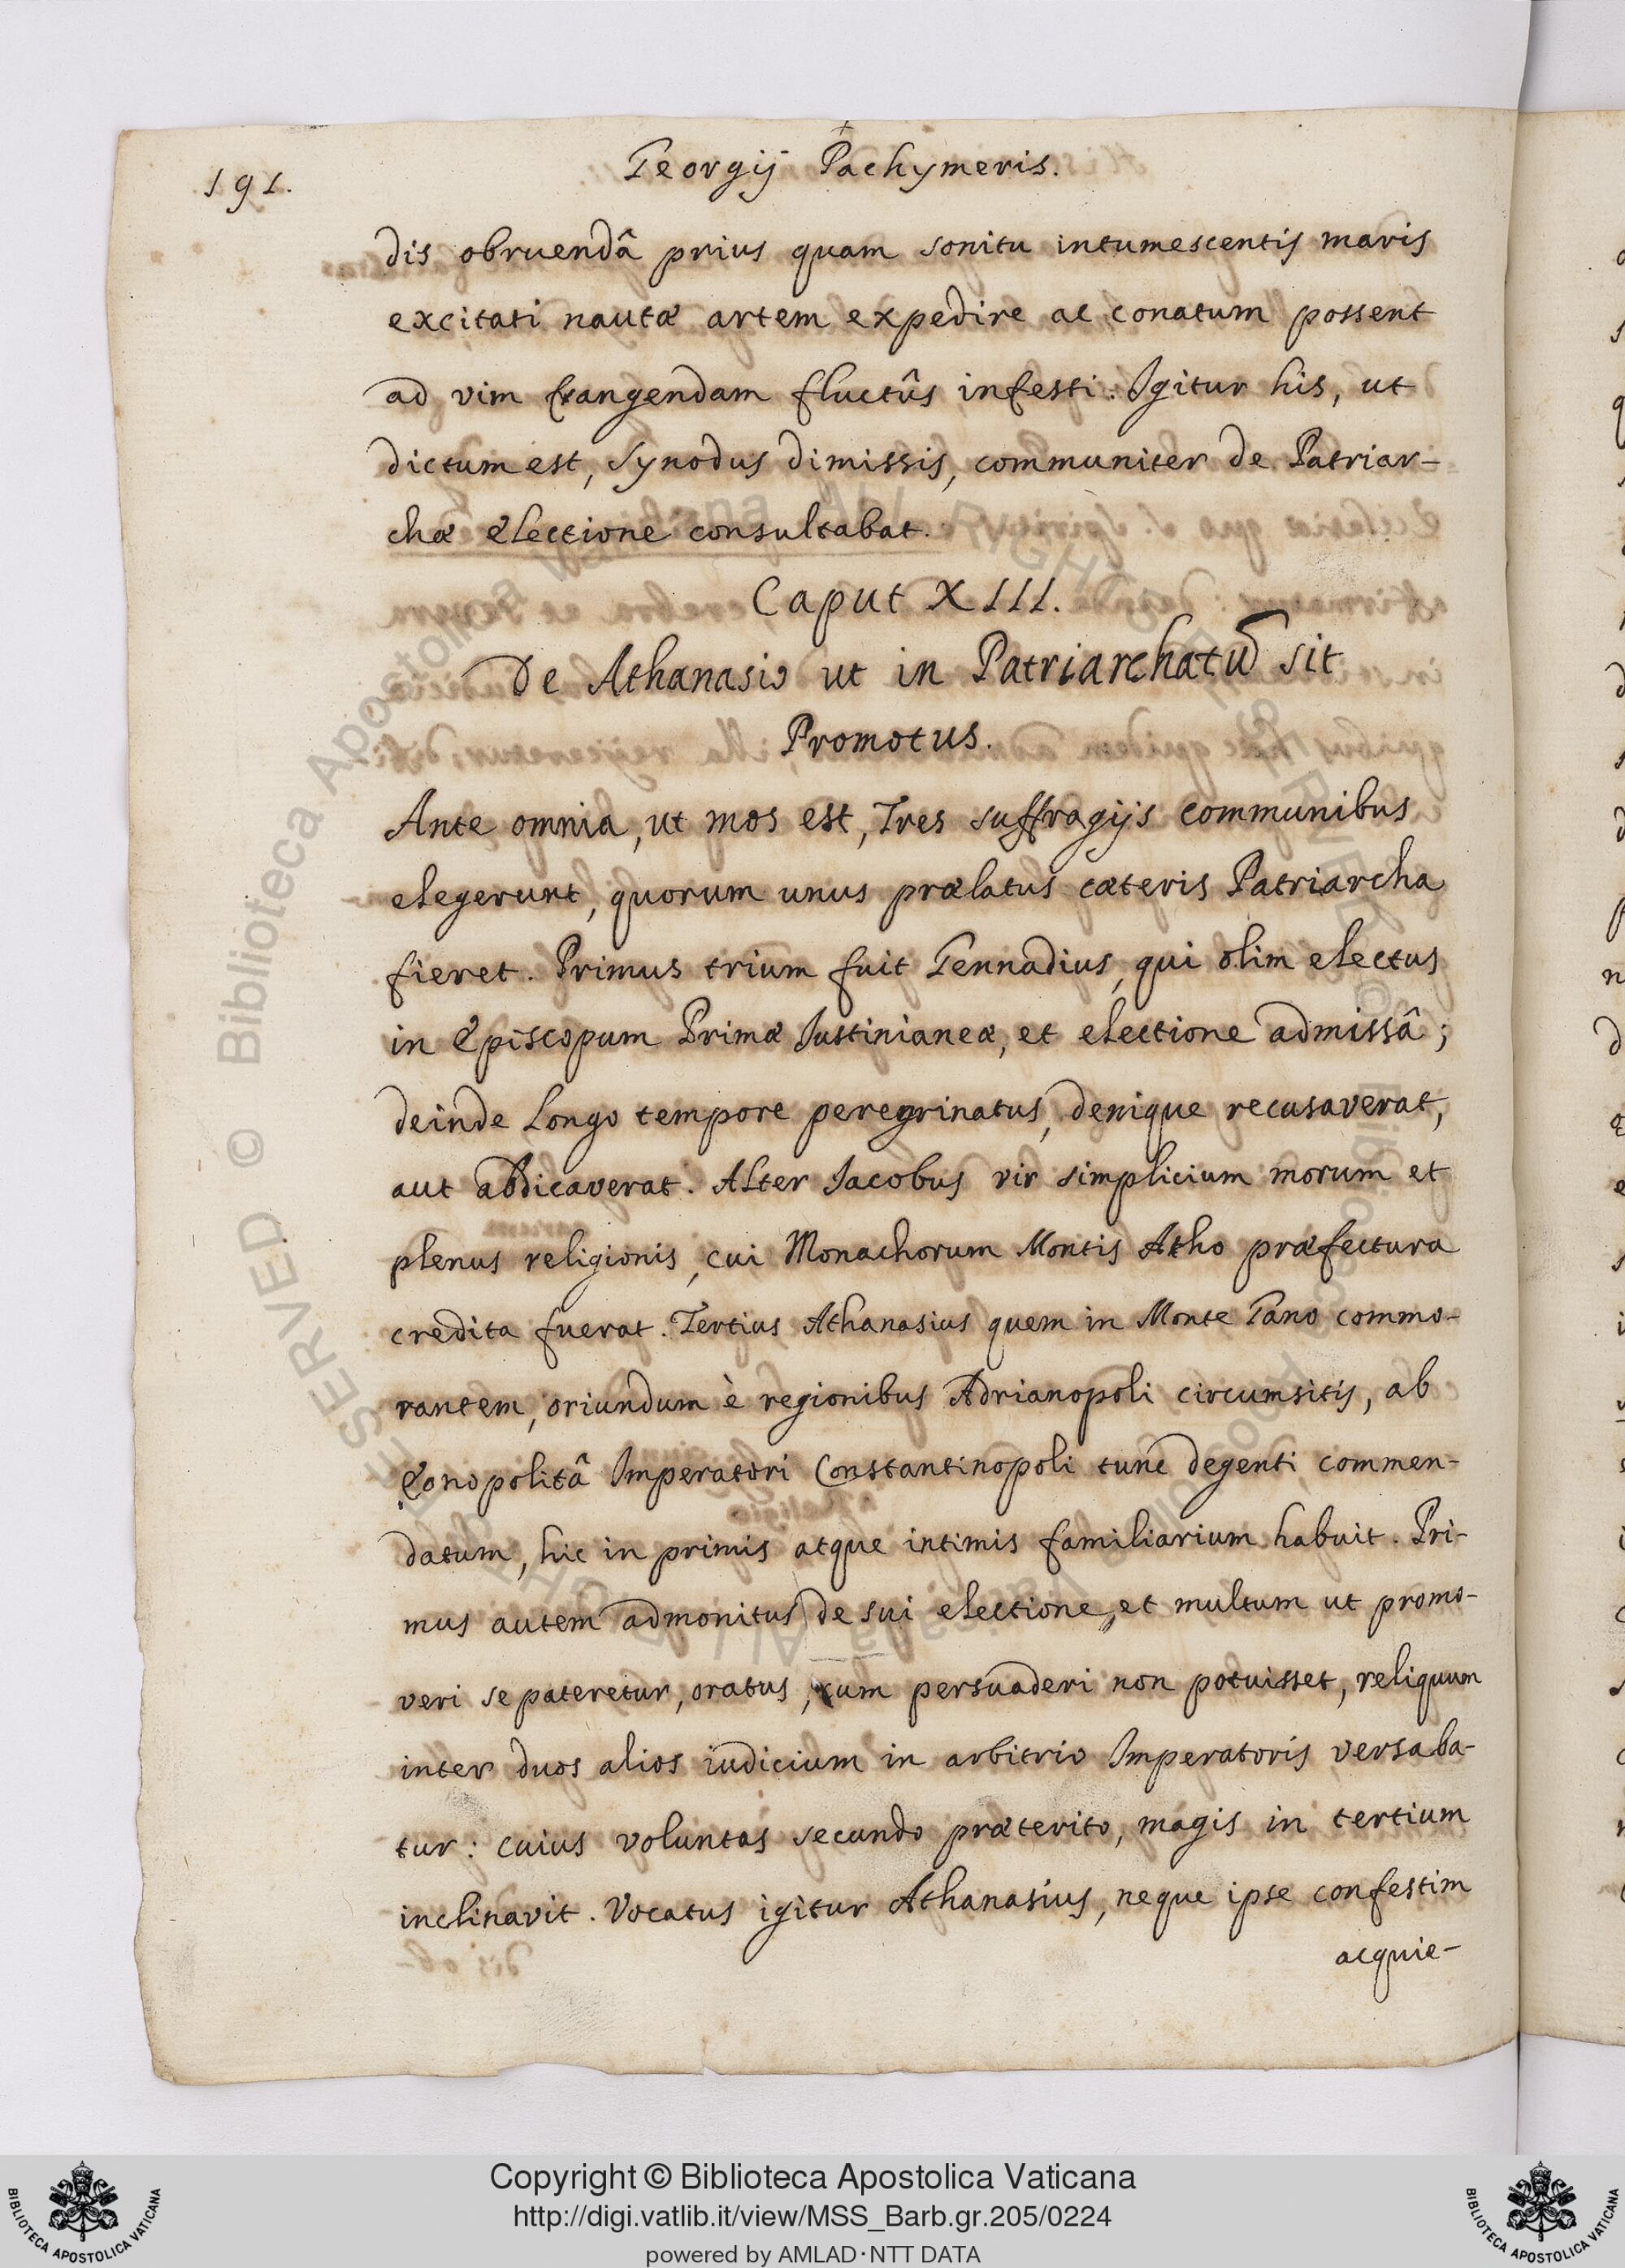 191.
Georgij Pachymeris.
dis obruendâ prius quam sonitu intumescentis maris
excitati nautæ artem expedire ac conatum possent
ad vim frangendam fluctûs infesti. Igitur his, ut
dictum est, Synodus dimissis, communiter de Patriar-
chæ electione consultabat.
Caput XIII.
De Athanasio ut in Patriarchatū sit
Promotus.
Ante omnia, ut mos est, Tres suffragijs communibus
elegerunt, quorum unus prælatus cæteris Patriarcha
fieret. Primus trium fuit Gennadius, qui olim electus
in Episcopum Primæ Iustinianeæ, et electione admissâ;
deinde longo tempore peregrinatus, denique recusaverat,
aut abdicaverat. Alter Iacobus vir simplicium morum et
plenus religionis, cui Monachorum Montis Atho præfectura
credita fuerat. Tertius Athanasius quem in Monte Gano commo-
rantem, oriundum è regionibus Adrianopoli circumsitis, ab
Eonopolitâ Imperatori Constantinopoli tunc degenti commen-
datum, hic in primis atque intimis familiarium habuit. Pri-
mus autem admonitus de sui electione, et multum ut promo-
veri se pateretur, oratus, cum persuaderi non potuisset, reliquum
inter duos alios iudicium in arbitrio Imperatoris versaba-
tur: cuius voluntas secundo præterito, magis in tertium
inclinavit. Vocatus igitur Athanasius, neque ipse confestim
acquie-
© Biblioteca Apostolica Vaticana
ALL RIGHTS RESERVED
BIBLIOTECA APOSTOLICA VATICANA
Copyright © Biblioteca Apostolica Vaticana
http://digi.vatlib.it/view/MSS_Barb.gr.205/0224
powered by AMLAD·NTT DATA
BIBLIOTECA APOSTOLICA VATICANA